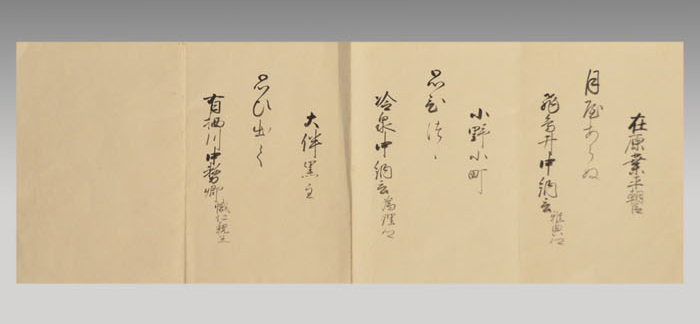 在原業平朝臣
月やあらぬ
飛鳥井中納言雅典卿
小野小町
思ひつゝ
冷泉中納言為理卿
大伴黒主
思ひ出て
有栖川中務卿幟仁親王